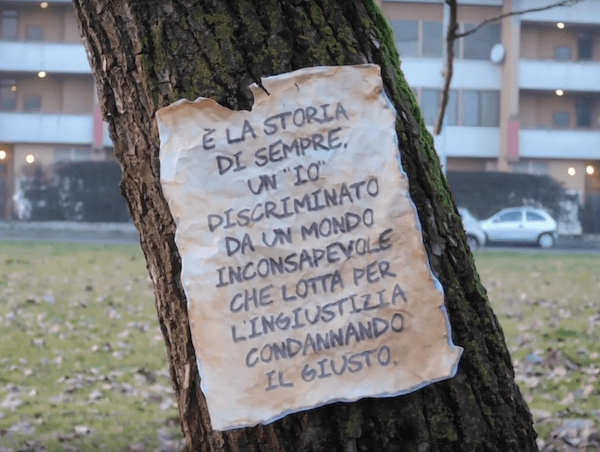 È LA STORIA
DI SEMPRE.
UN "IO"
DISCRIMINATO
DA UN MONDO
INCONSAPEVOLE
CHE LOTTA PER
LINGIUSTIZIA
CONDANNANDO
IL GIUSTO.